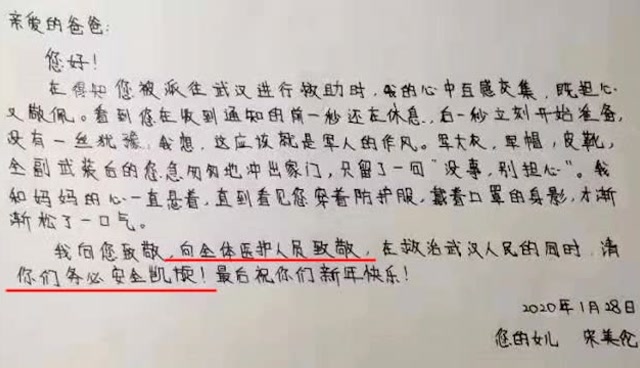 亲爱的爸爸:
您好!
在得知您被派往武汉进行救助时,我的心中百感交集,既担心
又敬佩。看到您在收到通知的前一秒还在休息,后一秒立刻开始准备,
没有一丝犹豫,我想,这应该就是军人的作风。军大衣,军帽,皮靴,
全副武装的您急匆匆地冲出家门,只留了一句“没事,别担心”。我
和妈妈的心一直悬着,直到看见您穿着防护服,戴着口罩的身影,才渐
渐松了一口气。
我向您致敬,向全体医护人员致敬,在救治武汉人民的同时,请
你们务必安全凯旋!最后祝你们新年快乐!
2020年1月28日
您的女儿 宋美伦